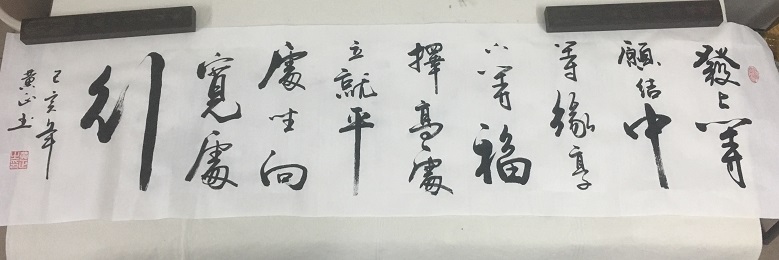 發上等
願結中
等緣享
下等福
擇高處
立就平
處坐向
寬處
行
己亥年
黄正